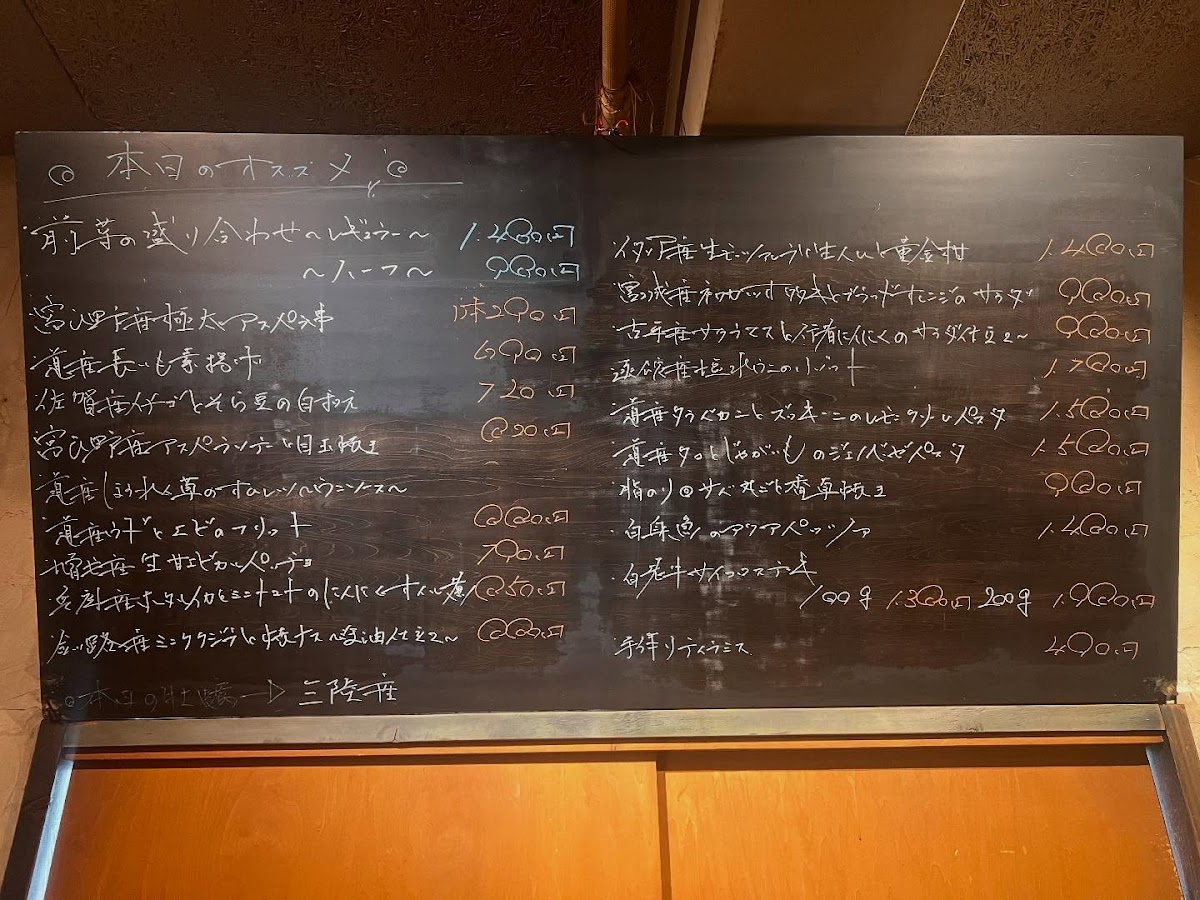 本日のオススメ
・前菜の盛り合わせ〜レギュラー〜 1.480円
〜ハーフ〜 980円
富良野産極太アスパラ串 1本290円
・道産長いも素揚げ 690円
佐賀産イチゴとそら豆の白和え 720円
富良野産アスパラソテーと目玉焼き 820円
・道産ほうれん草のオムレツ〜ウニソース〜
・道産ウドとエビのフリット 880円
・増毛産生甘エビカルパッチョ 790円
・兵庫産ホタルイカとミニトマトのにんにくオイル煮 850円
・釧路産ミンククジラと焼ナス〜醤油仕立て〜 880円
本日の牡蠣→三陸産
・イタリア産生モッツァレラと生ハムと黄金柑 1.480円
・宮城産カツオタタキとブラッドオレンジのサラダ 980円
・古平産サクラマスと行者にんにくのサラダ仕立て〜 980円
産粒ウニのリゾット 1.780円
・道産タラバカニとズッキーニのレモンクリームパスタ 1.580円
・道産タコとじゃがいものジェノベーゼパスタ 1.580円
・脂のりのサバ丸ごと香草焼き 980円
・白身魚のアクアパッツァ 1.480円
・白老牛サイコロステーキ
100g 1.380円 200g 1.980円
・手作りティラミス 490円